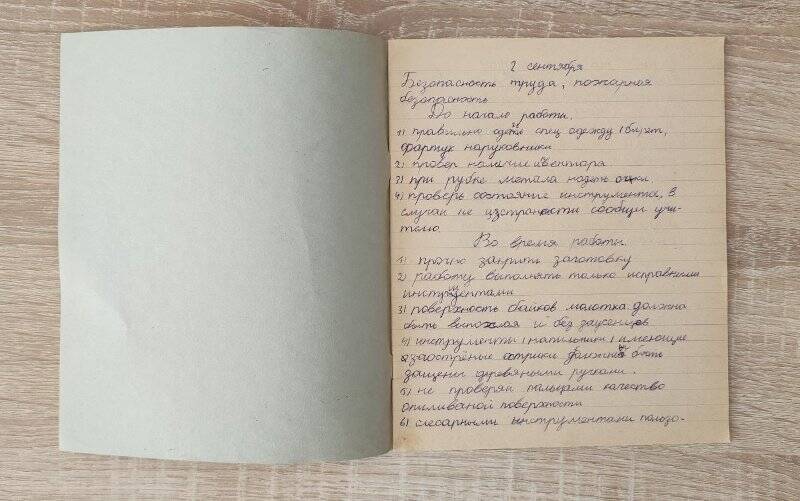 2 сентября
Безопасность труда, пожарная
безопасность
До начало работы.
1) правильно одеть спец одежду (берет,
фартук наруковники
2) провер наличие инвентора
3) при рубке метала надеть очки
4) проверь состояние инструмента, в
случаи не изправности сообщи учи-
телю.
Во время работы.
1) прочно закрипить заготовку
2) работу выполнять только исправными
инструментами
3) поверхность бойков молотка должна
быть выпоклая и без заусенцов
4) инструменты (напильники) имеющие
заостреные должны быть
защены деревяными ручками.
5) не проверяй пальцами качество
опиливаной поверхности
6) слесарными инструментами пользо-